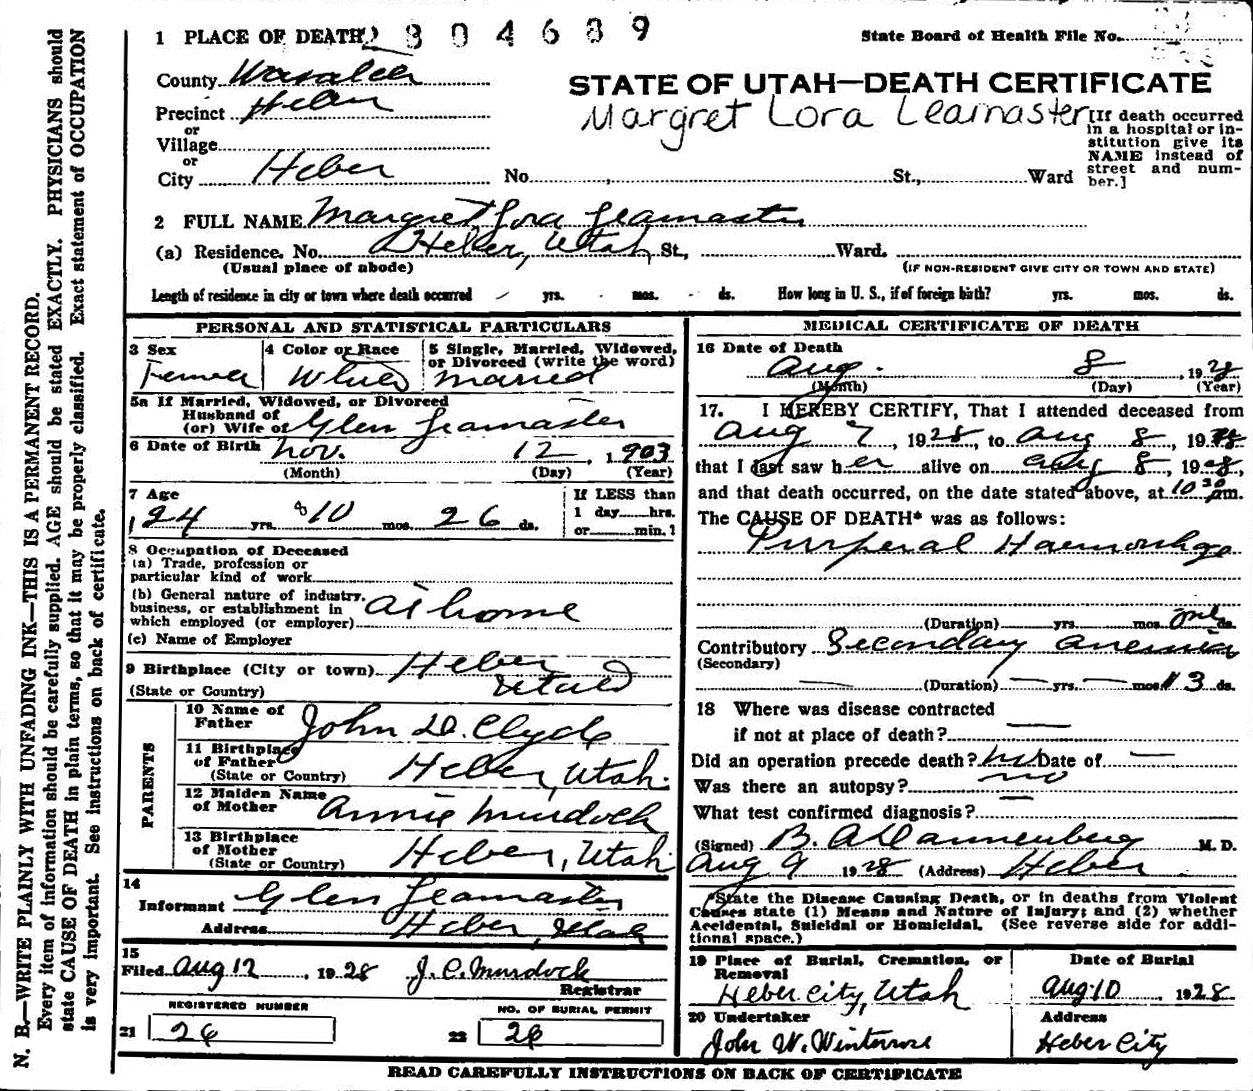 N. B.—WRITE PLAINLY WITH UNFADING INK—THIS IS A PERMANENT RECORD.
Every item of information should be carefully supplied. AGE should be stated EXACTLY. PHYSICIANS should
state CAUSE OF DEATH in plain terms, so that it may be properly classified. Exact statement of OCCUPATION
is very important. See instructions on back of certificate.
1 PLACE OF DEATH 304689
State Board of Health File No.
County Wasatch
STATE OF UTAH—DEATH CERTIFICATE
Precinct Heber
Margret Lora Leamaster
[If death occurred
in a hospital or in-
stitution give its
NAME instead of
street and num-
ber.]
or
Village
or
City Heber No. , St., Ward
2 FULL NAME Margret Lora Leamaster
(a) Residence. No. Heber, Utah St., Ward.
(Usual place of abode) (IF NON-RESIDENT GIVE CITY OR TOWN AND STATE)
Length of residence in city or town where death occurred yrs. mos. ds. How long in U. S., if of foreign birth? yrs. mos. ds.
PERSONAL AND STATISTICAL PARTICULARS
3 Sex 4 Color or Race 5 Single, Married, Widowed,
or Divorced (write the word)
Female White married
5a If Married, Widowed, or Divorced
Husband of
(or) Wife of Glen Leamaster
6 Date of Birth Nov. 12, 1903
(Month) (Day) (Year)
7 Age If LESS than
1 day hrs.
or min.
24 yrs. 10 mos. 26 ds.
8 Occupation of Deceased
(a) Trade, profession or
particular kind of work
(b) General nature of industry,
business, or establishment in
which employed (or employer) At home
(c) Name of Employer
9 Birthplace (City or town) Heber
(State or Country) Utah
PARENTS
10 Name of
Father John D. Clyde
11 Birthplace
of Father
(State or Country) Heber, Utah.
12 Maiden Name
of Mother Annie Murdock
13 Birthplace
of Mother
(State or Country) Heber, Utah
14
Informant Glen Leamaster
Address Heber, Utah
15
Filed Aug 12, 1928 J. C. Murdock
Registrar
REGISTERED NUMBER NO. OF BURIAL PERMIT
21 26 22 26
MEDICAL CERTIFICATE OF DEATH
16 Date of Death
Aug. 8, 1928
(Month) (Day) (Year)
17. I HEREBY CERTIFY, That I attended deceased from
Aug 7, 1928, to Aug 8, 1928
that I last saw her alive on Aug 8, 1928,
and that death occurred, on the date stated above, at 10 30 pm.
The CAUSE OF DEATH* was as follows:
Purperal Haemorrhage
(Duration) yrs. mos. one ds.
Contributory Secondary anemia
(Secondary)
(Duration) yrs. mos. 3 ds.
18 Where was disease contracted
if not at place of death?
Did an operation precede death? no Date of
Was there an autopsy? no
What test confirmed diagnosis?
(Signed) B. A. Dannenberg M. D.
Aug 9 1928 (Address) Heber
*State the Disease Causing Death, or in deaths from Violent
Causes state (1) Means and Nature of Injury; and (2) whether
Accidental, Suicidal or Homicidal. (See reverse side for addi-
tional space.)
19 Place of Burial, Cremation, or
Removal
Heber City, Utah
Date of Burial
Aug 10, 1928
20 Undertaker
John W. Winterose
Address
Heber City
READ CAREFULLY INSTRUCTIONS ON BACK OF CERTIFICATE